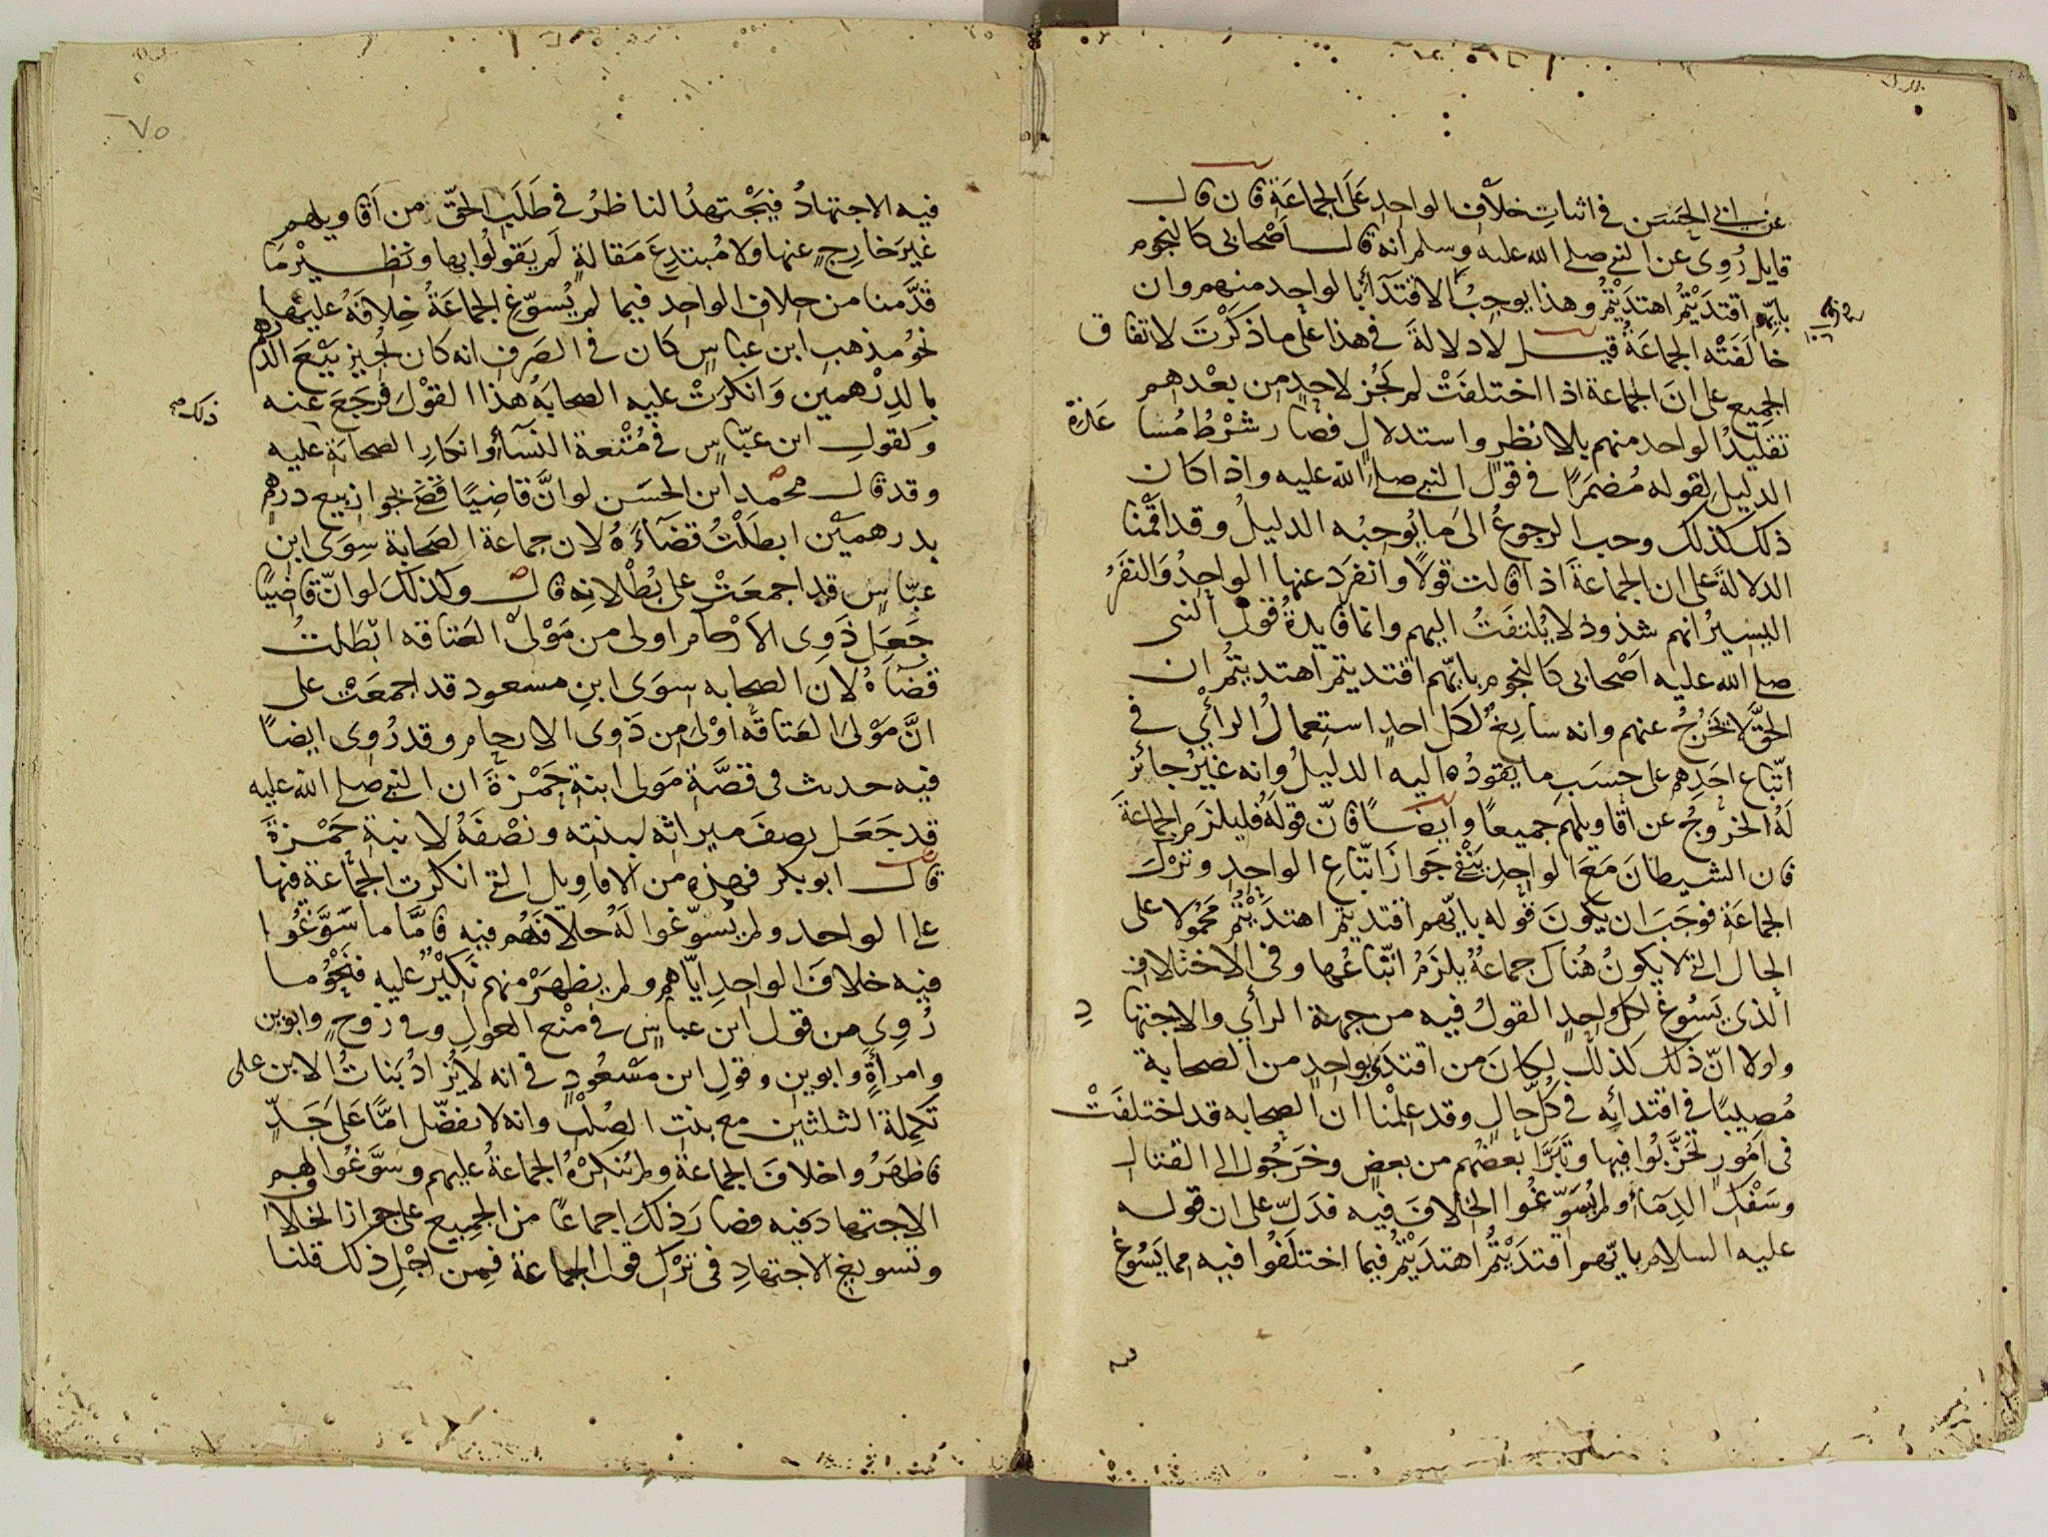 عن ابي الحَسَن في اثباتِ خلافِ الواحدِ عَلَى الجماعَةِ فان قال
قايل رُوِى عن النبي صلى الله عليه وسلم انه قال اَصْحابى كالنجوم
بايّهم اقتدَيْتُمُ اهتدَيْتُمْ وهذا يوجبُ الاقتدَآءَ بالواحِدِ منهم وان
خالَفَتْه الجماعَةُ قيل لا دلالةَ في هذا على ما ذكَرْتَ لاتفاق
الجميع على انَ الجماعة اذا اختلفَتْ لم يَجُز لاحدٍ من بعْدهم
تقليدُ الواحد منهم بلا نظرٍ واستدلالٍ فصار شرْطُ مُسا
عَدَةِ
الدليل لقوله مُضمَرًا في قول النبي صلى الله عليه واذا كان
ذلك كذلك وجب الرجوعُ الى ما يُوجبُه الدليلُ وقد اقمْنا
الدلالةَ على ان الجماعةَ اذا قالت قولًا وانفرَد عنها الواحِدُ وَالنفَرُ
اليسيرُ انهم شذوذ لا يُلتفَتُ اليهم وانما فايدةُ قول النبى
صلى الله عليه اَصْحابى كالنجوم بايّهم اقتديتم اهتديتُم ان
الحقَّ لا يَخْرُجُ عنهم وانه سايغٌ لكل احدٍ استِعمالُ الرأي في
اتّباع احَدِهم على حسَبِ ما يقودُه اليه الدليلُ وانه غيْرُ جائزٍ
لَهُ الخرُوجُ عن اقاويلهم جميعًا وايضًا فانّ قولَهُ فليلزَمِ الجماعَةَ
فان الشيطانَ مَعَ الواحِدِ يَنْفى جَوازَ اتّباعِ الواحِدِ وترْكَ
الجماعَة فوجَبَ ان يكونَ قوله بايّهم اقتديتم اهتدَيْتُمْ محمُولا على
الحال التي لا يكونُ هُناكَ جماعةٌ يلزَمُ اتّباعُها وفى الاختلاف
الذى يَسُوغ لكل واحِدٍ القولُ فيه من جهة الرأي والاجتها
دِ
ولولا انّ ذلك كذلكَ لكانَ من اقتدَى بواحِدٍ من الصحابة
مُصِيبًا في اقتدائه في كُلّ حالٍ وقد علِمْنا ان الصحابه قد اختلفَتْ
فى اُمُورٍ تَحَزَّبُوا فيها وتَبَرَّأ بعْضُهم من بعضٍ وخرَجُوا الى القتال
وسَفْكِ الدِمَآء ولم يُسَوّغُوا الخِلافَ فيه فدَلّ على ان قوله
عليه السلام بايّهم اقتدَيْتُمُ اهتدَيْتُمْ فيما اختلَفُوا فيه مما يَسُوغُ
٧٥
فيه الاجتهادُ فيَجْتهِدُ الناظرُ في طَلَبِ الحقّ من اَقاويلهم
غيرَ خارِجٍ عنها ولا مُبتدِعٍ مَقالةٍ لَم يَقولُوا بها ونظيْرُ مَا
قدَّمنا من خلافِ الواحد فيما لم يُسوّغِ الجماعَةُ خِلافَهُ عليها
نحوُ مذهب ابن عباس كان في الصَرفِ انه كان يُجيز بيْعَ الدرهم
بالدِرْهمين وَانكرَتْ عليه الصحابَةُ هذا القوْلَ فرَجَعَ عنه
وكقولِ ابن عبّاس في مُتْعة النسَآء وانكارِ الصحابَة عليه
ذلك
وقد قال محمّد ابن الحسَن لو انَّ قاضِيًا قضَى بجواز بيع درهمٍ
بدرهمَيْن ابطَلْتُ قضَآءَهُ لان جماعة الصَحابة سِوَى ابن
عبّاس قد اجمعَتْ على بُطْلانِه قال وكذلكَ لو انّ قاضيًا
جَعَل ذَوِى الاَرْحام اولى من مَوْلى العَتاقه ابْطَلتُ
قضَآهُ لان الصحابه سوَى ابنِ مسعود قد اجمعَتْ على
انَّ مَوْلىَ العَتاقَه اوْلىَ مِن ذَوى الارحام وقد رُوِى ايضًا
فيه حديث فى قصَّةِ مَولى ابنةِ حَمْزةَ ان النبي صلى الله عليه
قد جَعَل نصفَ ميراثه لبنته ونصْفَهُ لابنةِ حَمْزةَ
قال ابو بكر فهذه من الاقاوِيل التي انكرت الجماعة فيها
على الواحد ولم يُسوّغوا لَهُ خلافَهُم فيه فامَّا ما سَوَّغُوا
فيه خلافَ الواحِدِ ايّاهم ولم يظهَرْ منهم نَكيْرٌ عليه فنحْوُ ما
رُوِى من قول ابن عباسٍ في مَنْع العَولِ وفى زوْجٍ وابوين
وامرأةٍ وابوين وقولِ ابن مَسْعُودٍ فى انه لا يُزادُ بَنَاتُ الابن على
تَكمِلَة الثلثين مع بنت الصُلْبِ وانه لا نفضّل امًّا عَلَى جَدٍّ
فاظهَرُوا خلافَ الجماعَةِ ولم تُنكِرْهُ الجماعَةُ عليهم وسَوَّغُوا لهم
الاجتهادَ فيه فصارَ ذلكَ اجماعًا من الجميع على جواز الخلاف
وتسويغ الاجتهادِ فى ترْك قول الجماعة فمِن اجْلِ ذلك قلنا